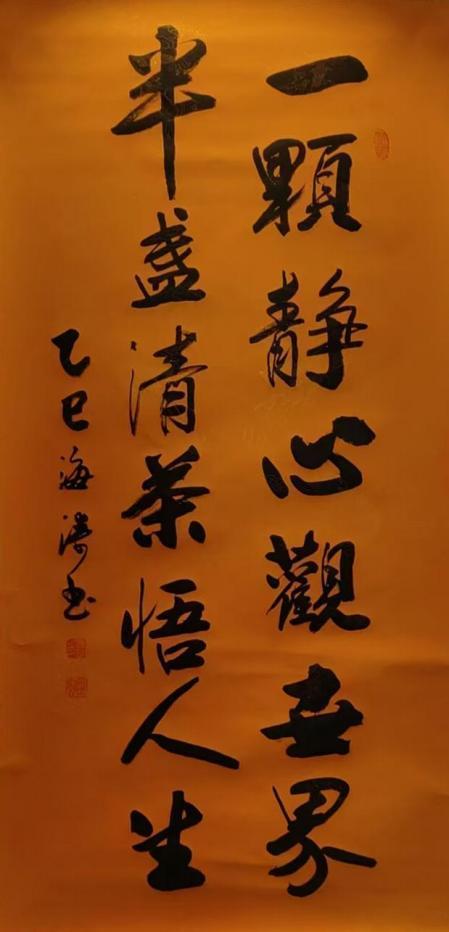 一顆静心觀世界
半盏清茶悟人生
乙巳海涛书